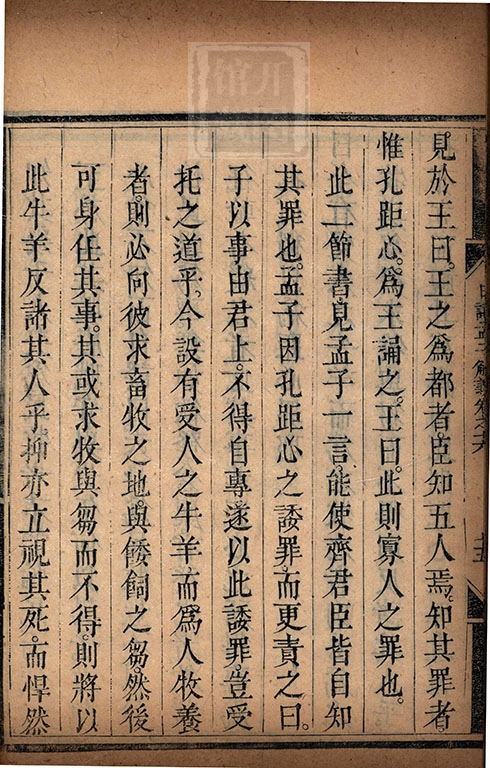 見於王曰。王之爲都者。臣知五人焉。知其罪者。
惟孔距心。爲王誦之。王曰。此則寡人之罪也。
此二節書。見孟子一言。能使齊君臣皆自知
其罪也。孟子因孔距心之諉罪。而更責之曰。
子以事由君上。不得自專。遂以此諉罪。豈受
托之道乎。今設有受人之牛羊。而爲人牧養
者。則必向彼求畜牧之地。與餧飼之芻。然後
可身任其事。其或求牧與芻而不得。則將以
此牛羊反諸其人乎。抑亦立視其死。而悍然
日講孟子解義卷之六